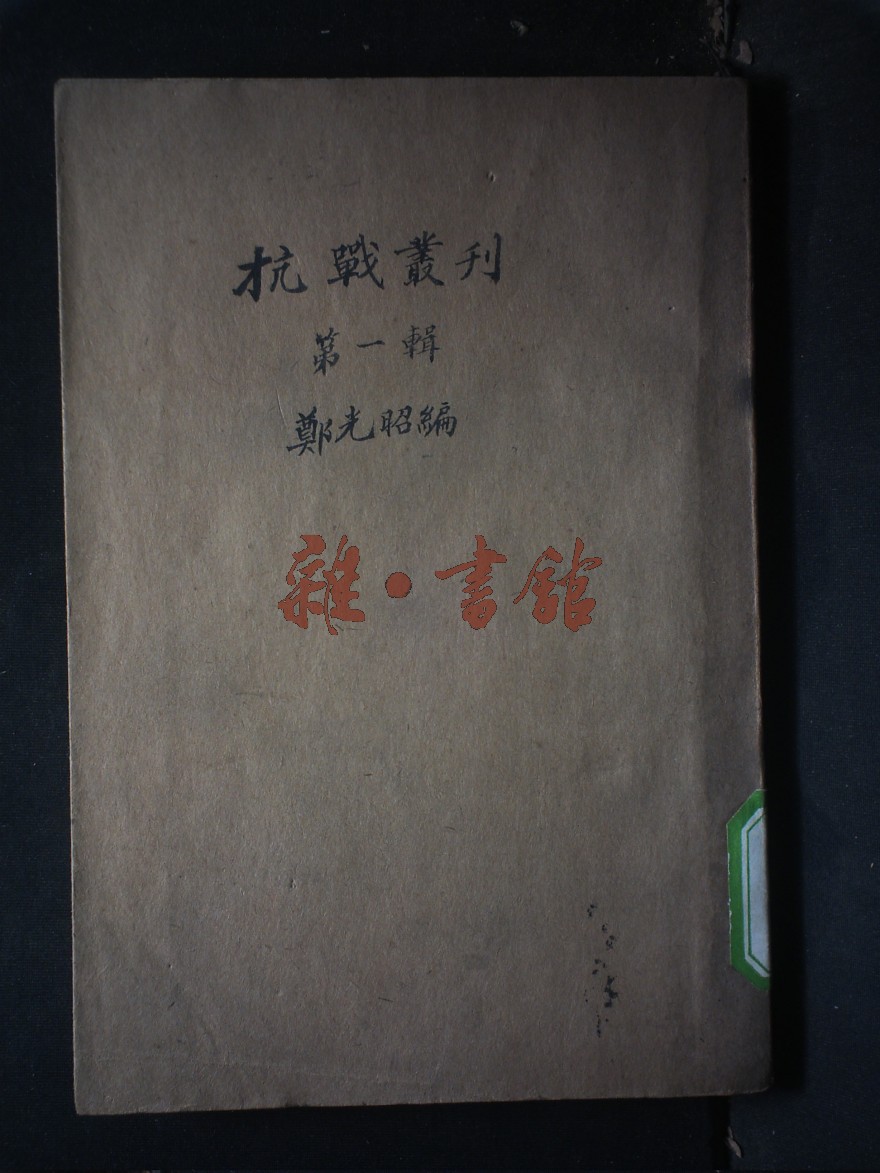 抗戰叢刊
第一輯
鄭光昭編
雜·書館